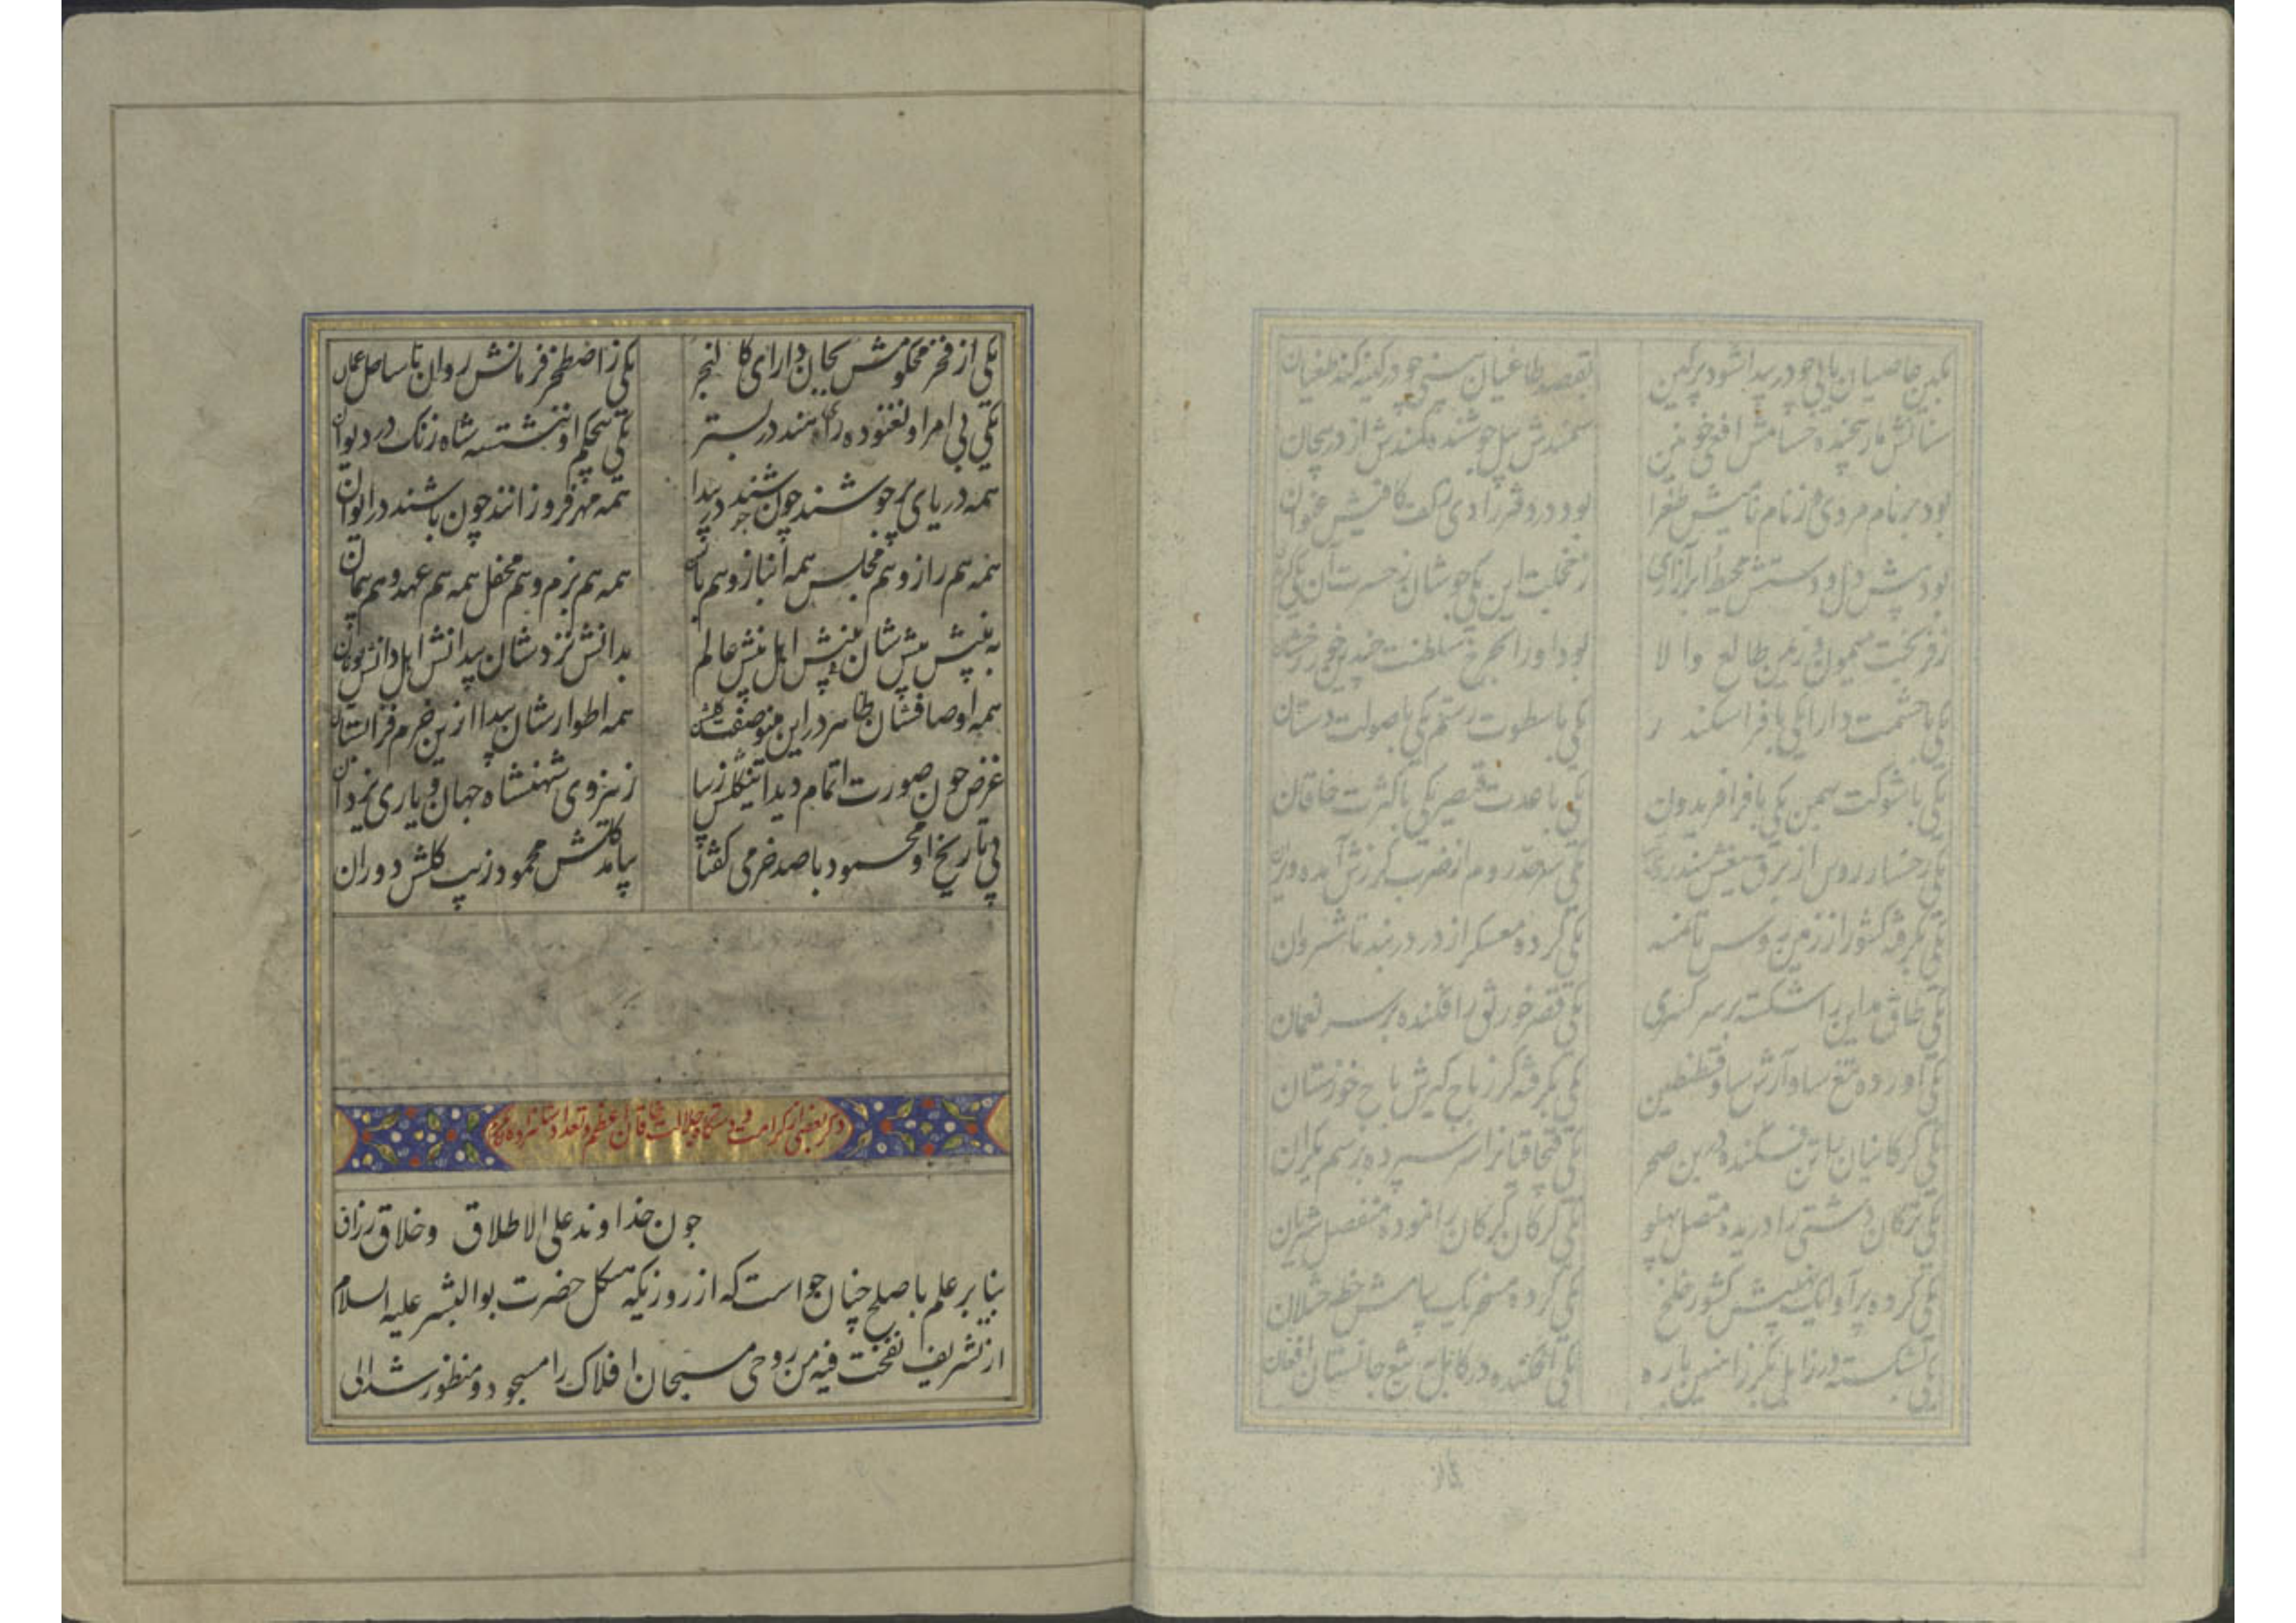 بکین عاصیان یابی چو در بیدا شود پرکین بقصد طاغیان بینی چو در کینه کند طغیان
سنانش مار پیچنده حسامش افعی خونین سمندش پیل جوشنده کمندش اژدر پیچان
بود بر نام مردی از نام نامیش طغرا بود در دفتر رادی کف کافیش عنوان
بود پیش دل و دستش محیط و ابر آزاری ز خجلت این یکی جوشان ز حسرت آن یکی
ز فر بخت میمون و ز یمن طالع والا بود او را بچرخ سلطنت چندین
یکی با حشمت دارا یکی با فر اسکندر یکی با سطوت رستم یکی با صولت دستان
یکی با شوکت بهمن یکی با فر افریدون یکی با عدت قیصر یکی با کثرت خاقان
یکی رخسار روس از برق تیغش یکی سرحد روم از ضرب گرزش آمده ویران
یکی بگرفته کشور از زمین روس تا یکی کرده معسکر از در دربند تا شروان
یکی طاق مداین را شکسته بر سر کسری یکی قصر خورنق را فکنده بر سر نعمان
یکی آورده تیغ یکی بگرفته گرز باج گیرش باج خوزستان
یکی گرگانیان را تن فکنده در بن صحر یکی قبچاقیانرا سر سپرده بر سم یکران
یکی ترکان دشتی را دریده متصل پهلو یکی گرگان گرگان را نموده منفصل شریان
یکی کرده پرآوا یک نهیبش کشور خلخ یکی کرده مسخر یک پیامش خطه ختلان
یکی بشکسته در زابل بگرز آهنین باره یکی افکنده در کابل بتیغ جانستان افغان
یکی از فخر محکومش بجان دارای کالنجر یکی ز اصطخر فرمانش روان تا ساحل عمان
یکی بی امر او نغنوده رای هند در بستر یکی بی حکم او ننشسته شاه زنگ در دیوان
همه دریای پرجوشند چون باشند در بیدا همه مهر فروزانند چون باشند در ایوان
همه هم راز و هم مجلس همه انباز و هم همه هم بزم و هم محفل همه هم عهد و هم پیمان
به بینش پیش شان بینش اهل بینش عالم بدانش نزدشان پیدا نش اهل دانش یونان
همه اوصافشان ظاهر در این مینو صفت گلشن همه اطوارشان پیدا ازین خرم
غرض چون صورت اتمام دید این گلشن زیبا ز نیروی شهنشاه جهان و یاری یزدان
پی تاریخ او محمود با صد خرمی گفتا بیامد گلشن محمود زیب گلشن دوران
ذکر بعضی از کرامت و دستگاه جلالت خاقان اعظم و تعداد شاهزاده
چون خداوند علی الاطلاق و خلاق رزاق
بنا بر علم باصلح چنان خواست که از روزیکه هیکل حضرت بوالبشر علیه السلام
از تشریف نفخت فیه من روحی مسبحان افلاک را مسجود و منظور شد الی